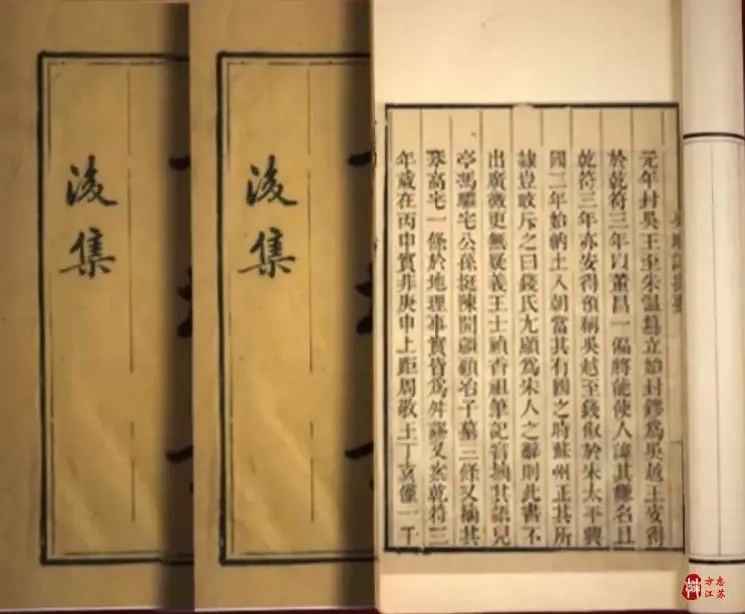 後集
後集
元年封吳王至朱溫篡立始封鏐爲吳越王安得
於乾符三年以董昌一偏將能使人諱其嫌名且
乾符三年亦安得預稱吳越至錢俶於宋太平興
國二年始納土入朝當其有國之時蘇州正其所
隸豈敢斥之曰錢氏尤顯爲宋人之辭則此書不
出廣微更無疑義王士禎香祖筆記嘗摘其語兒
亭馮驩宅公孫挺陳開疆顧冶子墓三條又摘其
琴高宅一條於地理事實皆爲舛謬又案乾符三
年歲在丙申實非庚申上距周敬王丁亥僅一千
方志
江苏